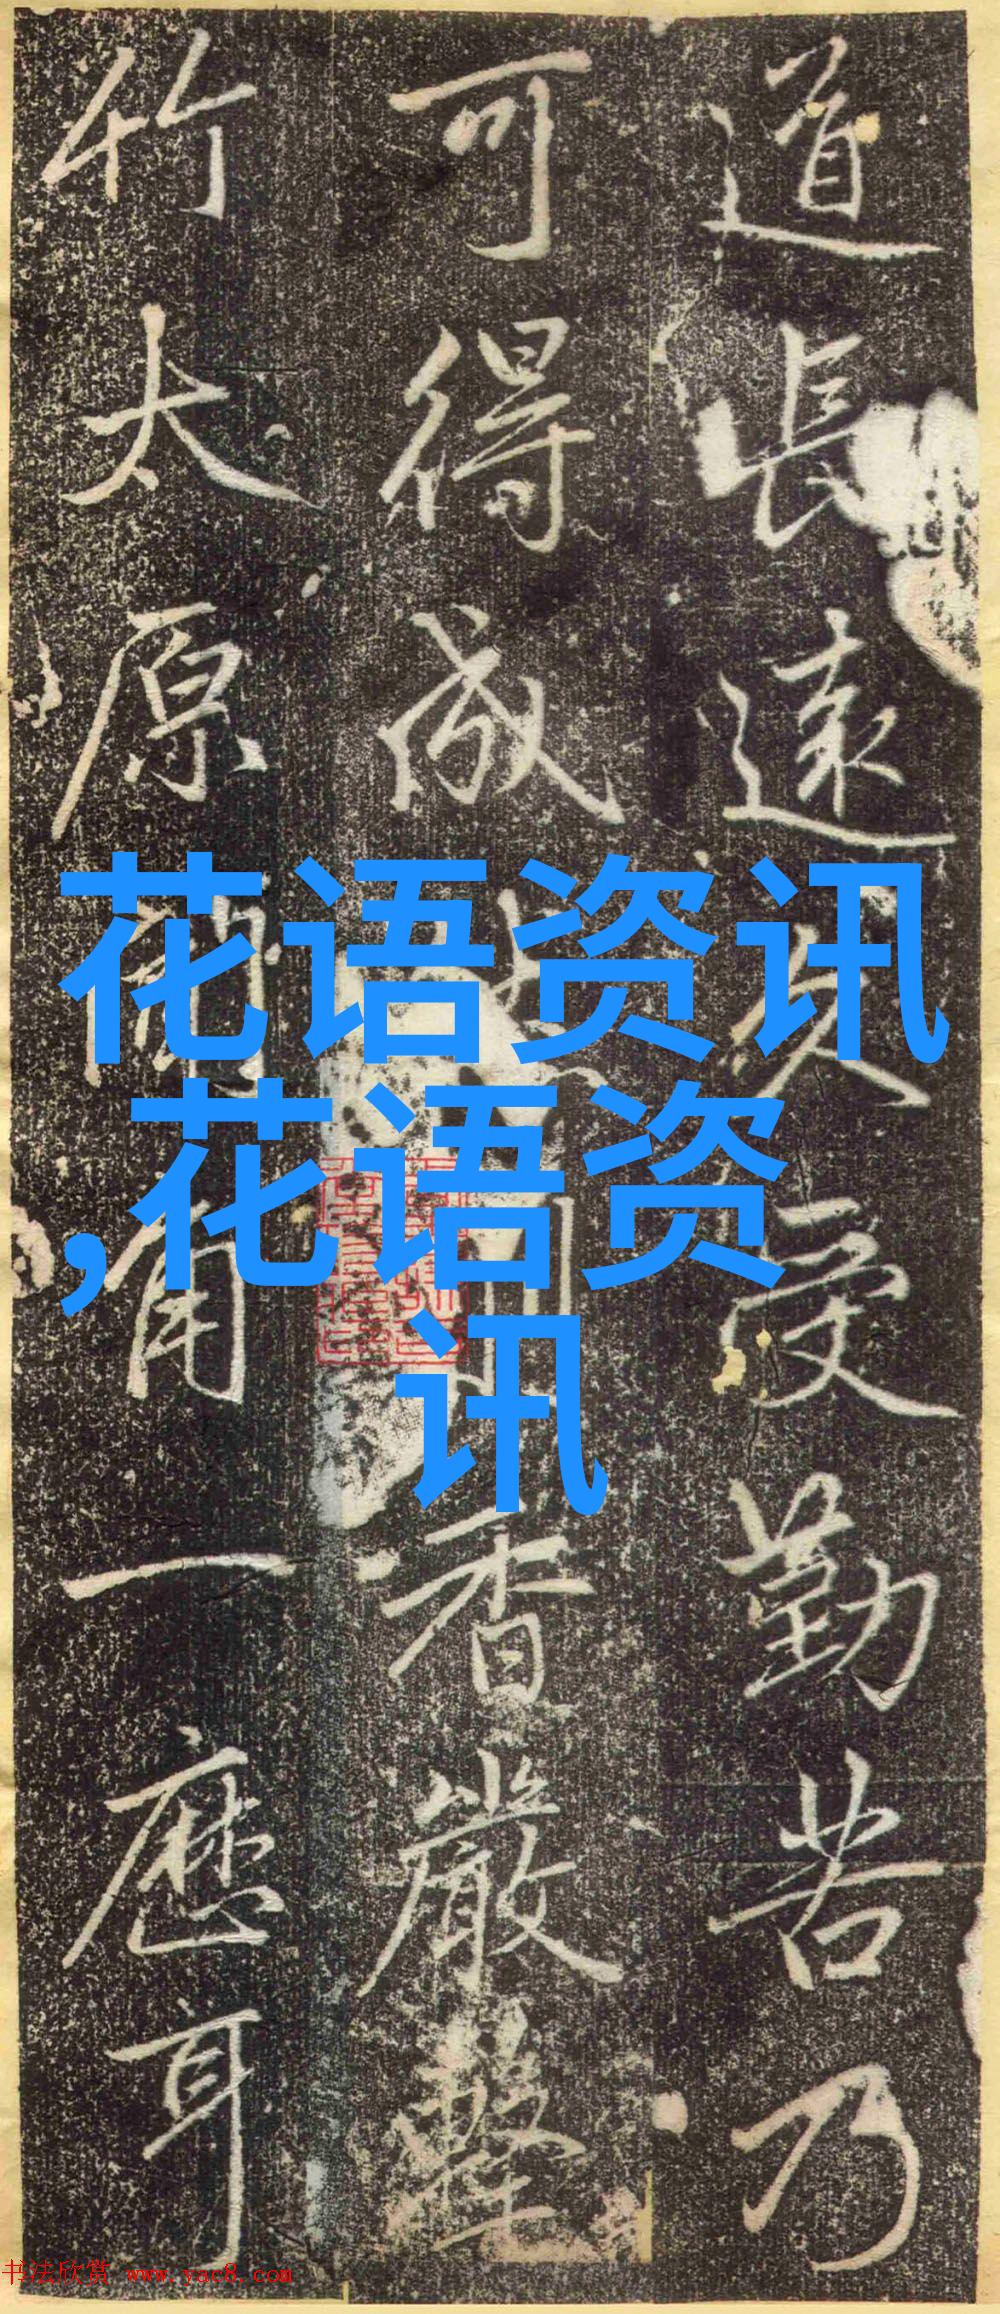 道長遠久受勤苦乃
可得成
香嚴擊
竹太原
有一應耳
花语资讯
,花语资
讯
书法欣赏 www.yac8.com